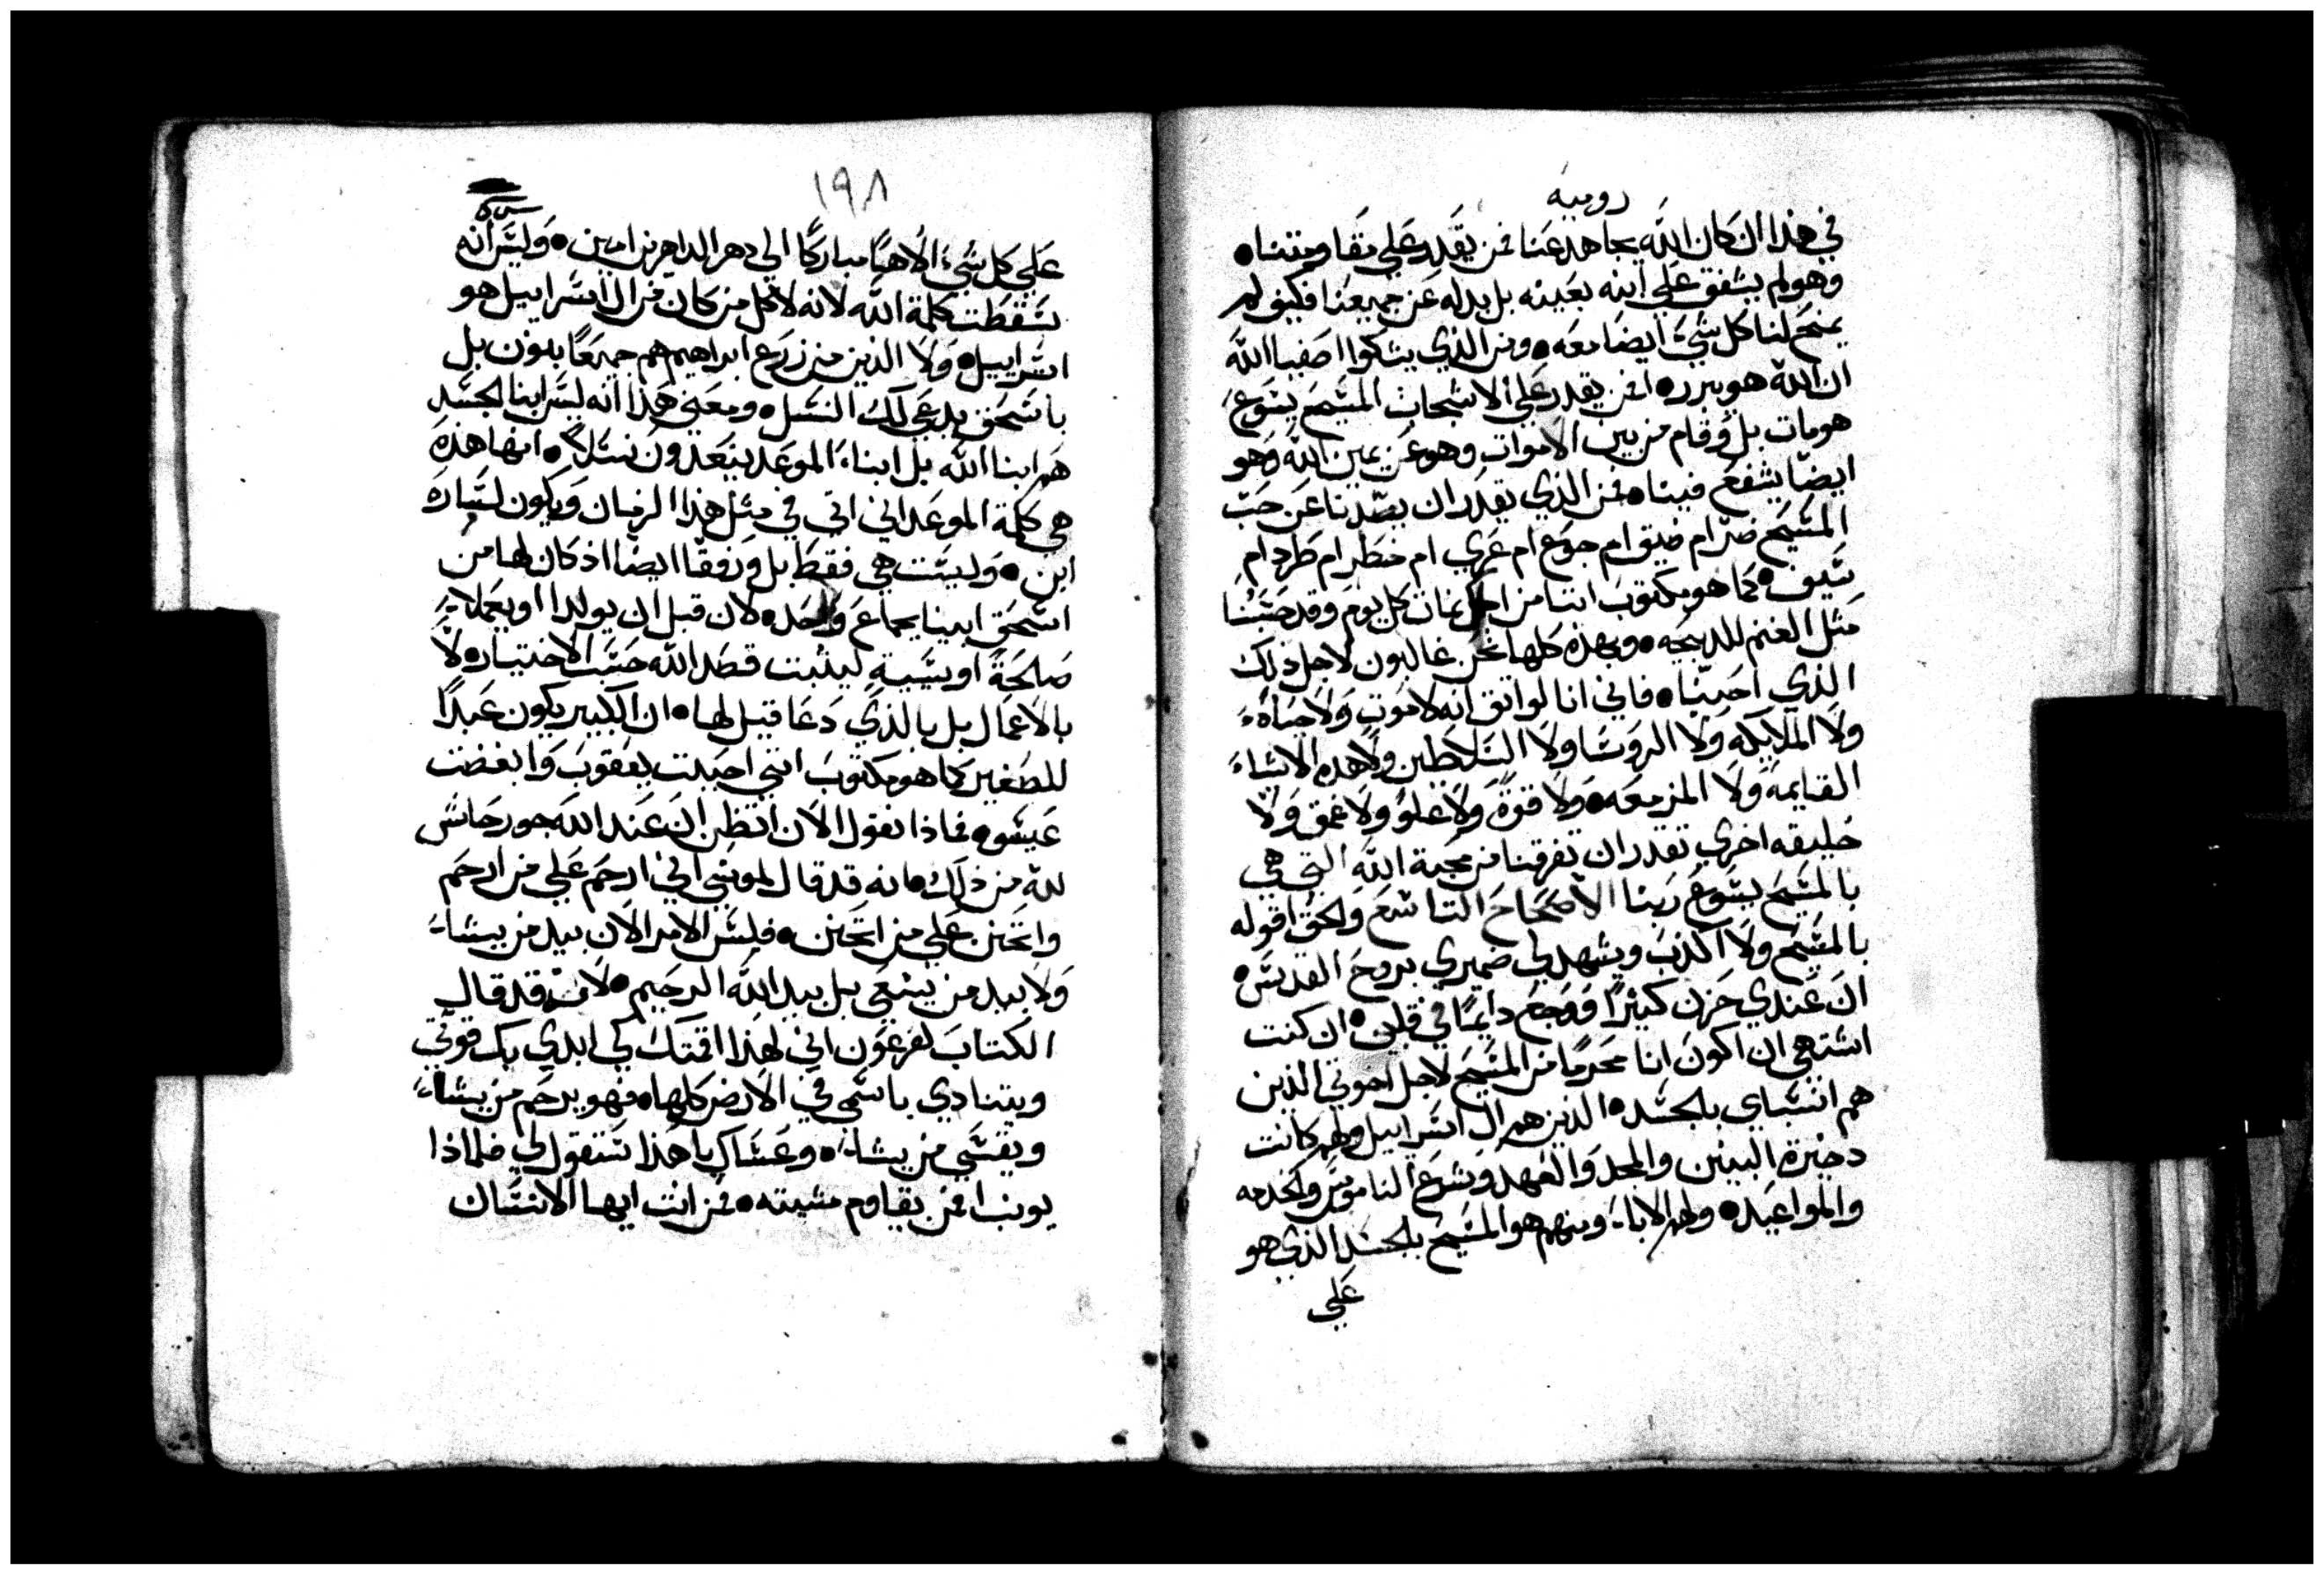 رومية
في هذا ان كان الله يجاهد عنا فمن يقدر علي مقاومتنا •
وهو لم يشفق علي ابنه بعينه بل بدله عن جميعنا فكيف لم
يمنح لنا كل شي ايضا معه • ومن الذي يشكوا اصفيا الله
ان الله هو يبرر • افمن يقدر علي الاشجاب المسيح يسوع
هو مات بل وقام من بين الاموات وهو عن يمين الله وهو
ايضا يشفع فينا • فمن الذي يقدر ان يصدنا عن حب
المسيح ضر ام ضيق ام جوع ام عري ام خطر ام طرد ام
سيف • كما هو مكتوب اننا من اجلك نمات كل يوم وقد حسبنا
مثل الغنم للدبيحه • وبهذه كلها نحن غالبون لاجل ذلك
الذي احبنا • فاني انا لواتق انه لا موت ولا حياة
ولا الملايكه ولا الروسا ولا السلاطين ولا هذه الاشياء
القايمة ولا المزمعه • ولا قوة ولا علو ولا عمق ولا
خليقه اخري تقدر ان تفرقنا من محبة الله التي هي
بالمسيح يسوع ربنا الاصحاح التاسع والحق اقوله
بالمسيح ولا اكذب ويشهد لي ضميري بروح القدس •
ان عندي حزن كثيرا ووجع دايما في قلبي • ان كنت
اشتهي ان اكون انا محرما من المسيح لاجل اخوتي الذين
هم انسباي بالجسد • الذين هم ال اسراييل ولهم كانت
دخيرة البنين والمجد والعهد وشرع الناموس والخدمه
والمواعيد • ولهم الاباء ومنهم هو المسيح بالجسد الذي هو
علي
١٩٨
علي كل شيء الاها مباركا الي دهر الداهرين امين • وليس انه
سقطت كلمة الله لانه لا كل من كان من ال اسراييل هو
اسراييل • ولا الذين من زرع ابراهيم هم جميعا بنون بل
باسحق يدعي لك النسل • ومعني هذا انه ليس ابنا الجسد
هم ابنا الله بل ابناء الموعد يتعدون نسلا • انها هذه
هي كلمة الموعد اني اتي في مثل هذا الزمان ويكون لساره
ابن • وليست هي فقط بل ورفقا ايضا اذ كان لها من
اسحق ابينا بجماع واحده لان قبل ان يولدا او يعملا
صالحة او سية ليثبت قصد الله حسب الاختيار • لا
بالاعمال بل بالذي دعا قيل لها • ان الكبير يكون عبدا
للصغير كما هو مكتوب انني احببت يعقوب وابغضت
عيسو • فماذا نقول الان اتظن ان عند الله جور حاش
لله من ذلك • انه قد قال لموسي اني ارحم علي من ارحم
واتحنن علي من اتحنن • فليس الامر الان بيد من يشاء
ولا بيد من يسعي بل بيد الله الرحيم • لان قد قال
الكتاب لفرعون اني لهذا اقمتك لكي ابدي بك قوتي
ويتنادي باسمي في الارض كلها • فهو يرحم من يشاء
ويقسي من يشاء • وعساك يا هذا ستقول لي فلماذا
يونب افمن يقاوم مشيته • فمن انت ايها الانسان